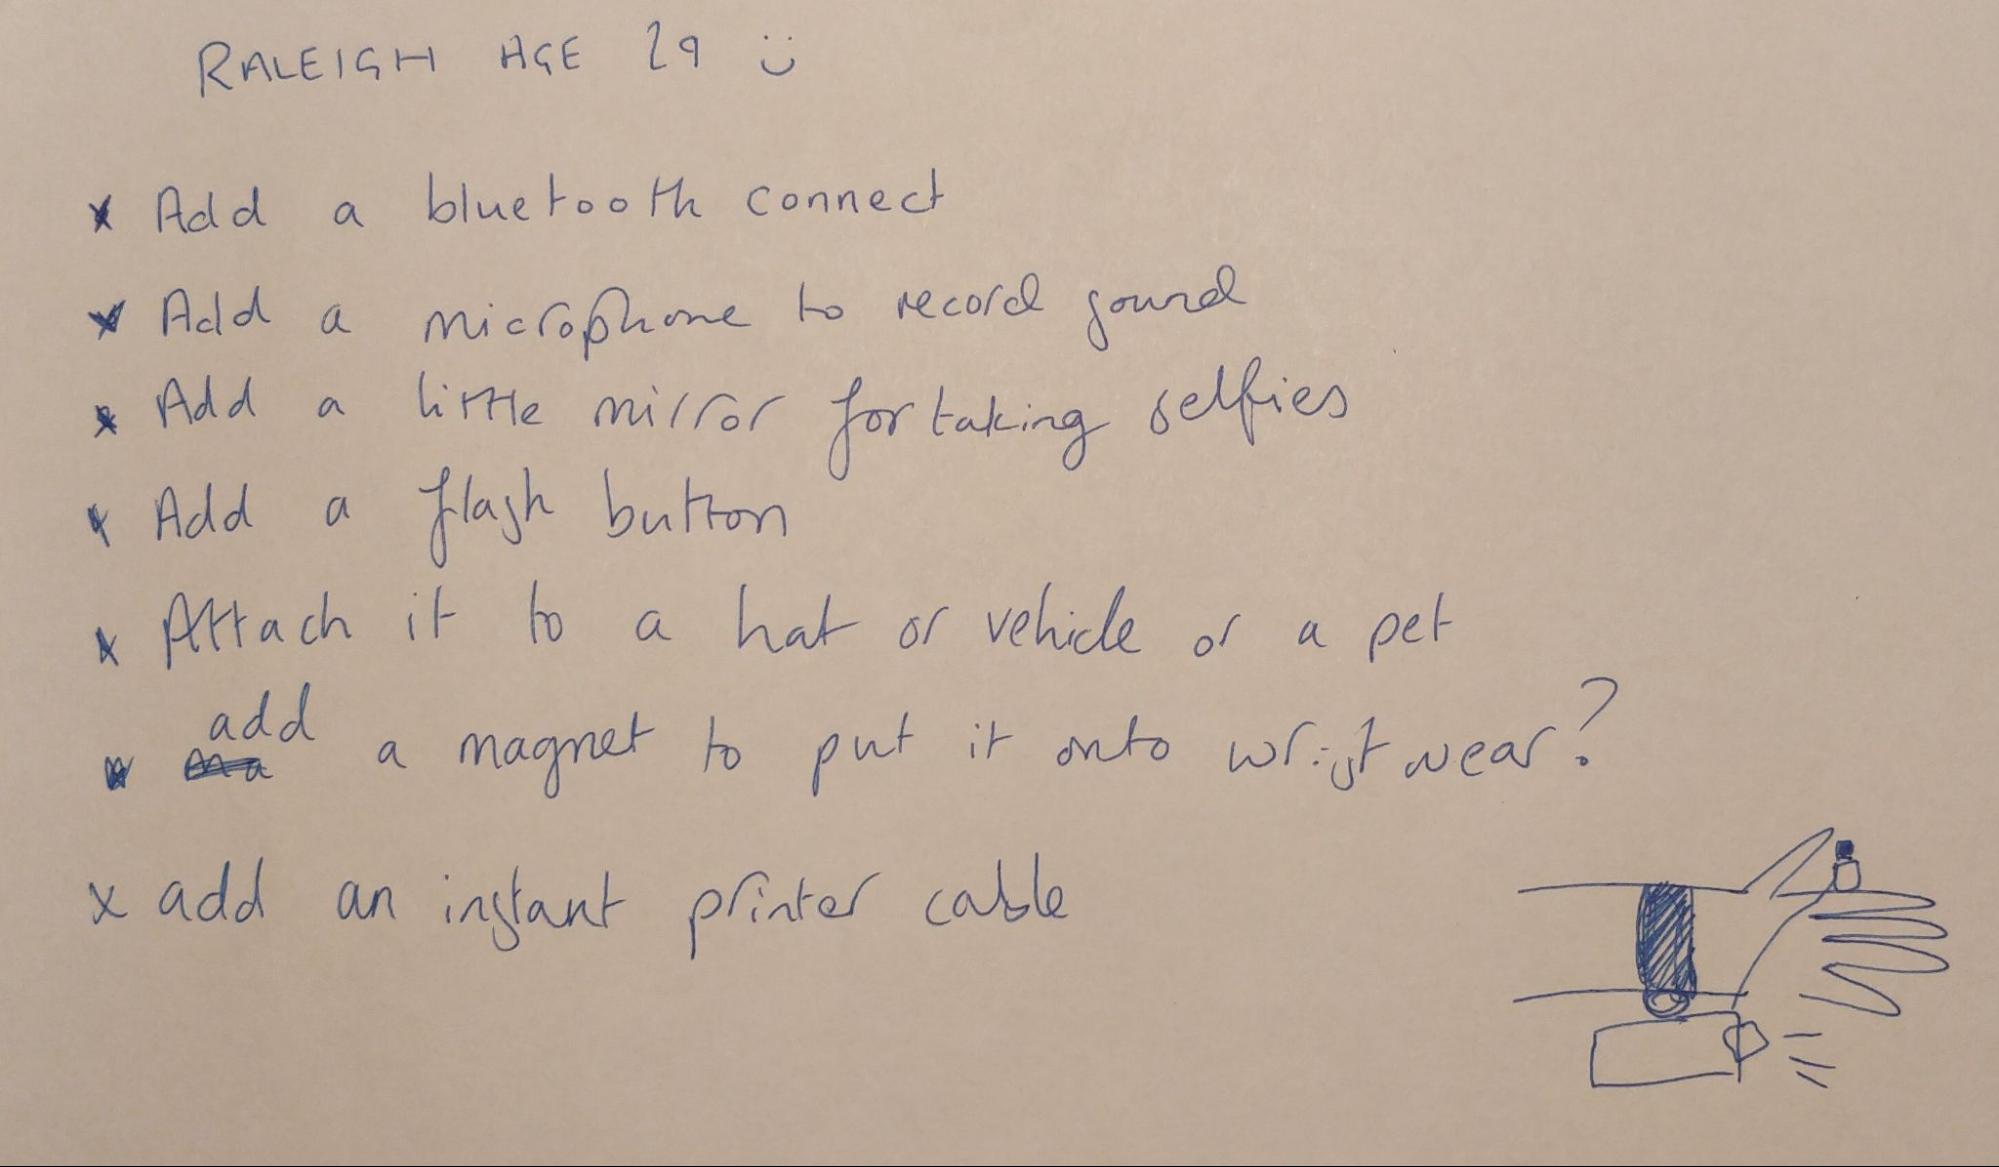 RALEIGH AGE 29 :)
x Add a bluetooth connect
x Add a microphone to record sound
x Add a little mirror for taking selfies
x Add a flash button
x Attach it to a hat or vehicle or a pet
x add a magnet to put it onto wrist wear?
x add an instant printer cable